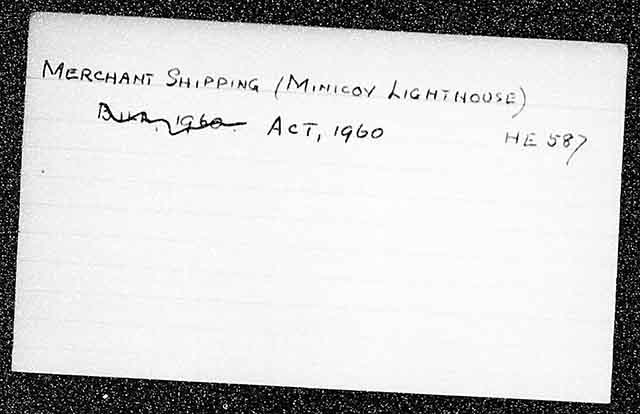 MERCHANT SHIPPING (MINICOY LIGHTHOUSE)
BILL, 1960. ACT, 1960 HE 587